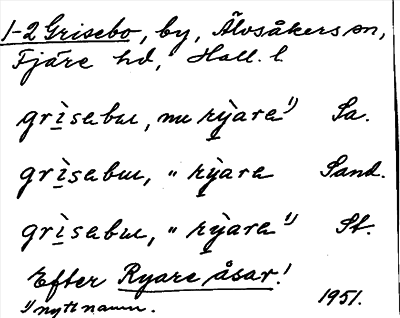 1-2 Grisebo, by, Älvsåkers sn,
Fjäre hd, Hall. l
grìsebu, nu rỳara 1) Sa.
grìsebu, " rỳara Sand.
grìsebu, " rỳara 1) St.
Efter Ryare åsar!
1) nytt namn. 1951.